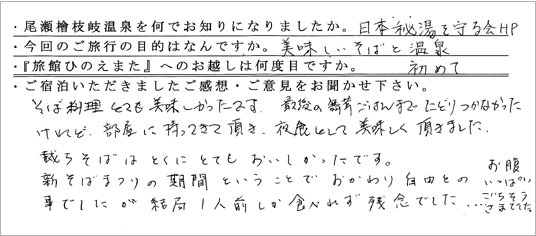 ・尾瀬檜枝岐温泉を何でお知りになりましたか。日本秘湯を守る会HP
・今回のご旅行の目的はなんですか。美味しいそばと温泉
・『旅館ひのえまた』へのお越しは何度目ですか。初めて
・ご宿泊いただきましたご感想・ご意見をお聞かせ下さい。
そば料理とても美味しかったです。最後の舞茸ごはんまでたどりつかなかった
けれど、部屋に持ってきて頂き、夜食として美味しく頂きました。
裁ちそばはとくにとてもおいしかったです。
新そばまつりの期間ということでおかわり自由との
事でしたが結局1人前しか食べれず残念でした…
お腹
いっぱい
ごちそう
さまでした。